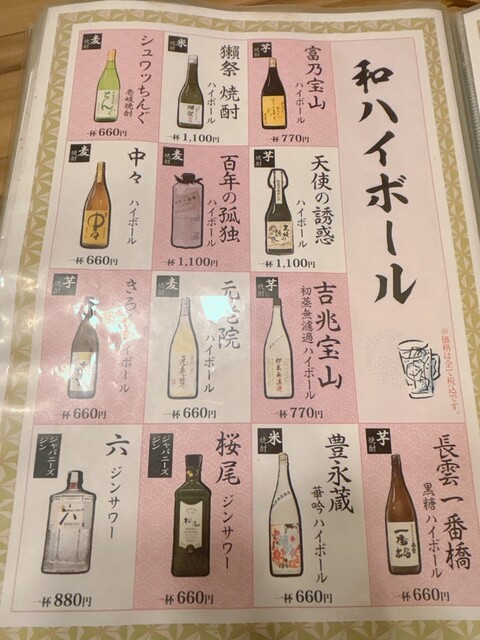 和ハイボール
※価格は全て税込です。
芋焼酎
富乃宝山
ハイボール
一杯 770円
米焼酎
獺祭 焼酎
ハイボール
一杯 1,100円
麦焼酎
シュワッちんぐ
壱岐焼酎
一杯 660円
芋焼酎
天使の誘惑
ハイボール
一杯 1,100円
麦焼酎
百年の孤独
ハイボール
一杯 1,100円
麦焼酎
中々
ハイボール
一杯 660円
芋焼酎
吉兆宝山
初蒸無濾過ハイボール
一杯 770円
麦焼酎
元老院
ハイボール
一杯 660円
芋焼酎
きろ
ハイボール
一杯 660円
芋焼酎
長雲一番橋
黒糖ハイボール
一杯 660円
米焼酎
豊永蔵
華吟ハイボール
一杯 660円
ジャパニーズジン
桜尾
ジンサワー
一杯 660円
ジャパニーズジン
六
ジンサワー
一杯 880円